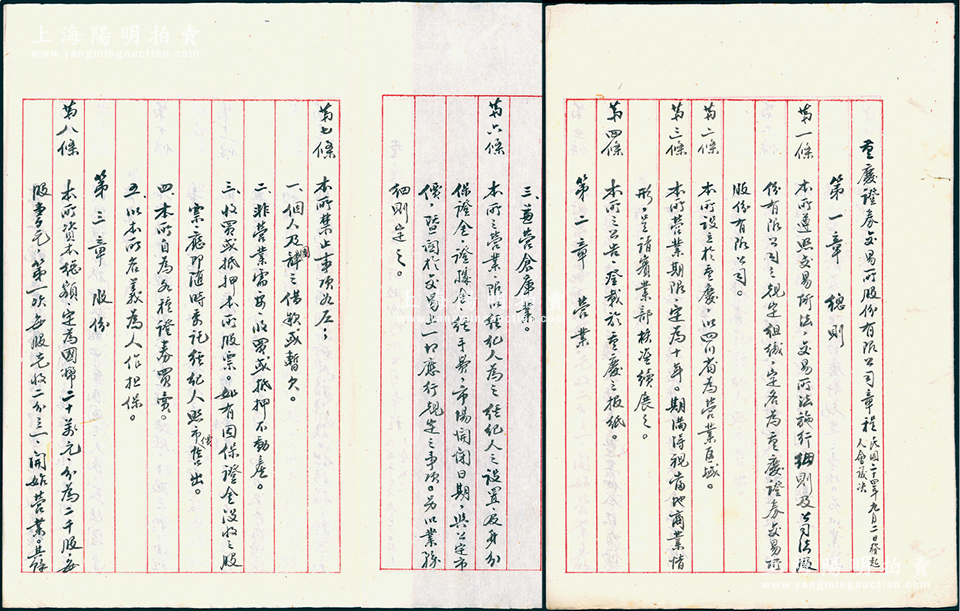 重慶證券交易所股份有限公司章程 民國二十四年九月二日發起
人會議決
第一章 總則
第一條 本所遵照交易所法、交易所法施行細則及公司法股
份有限公司之規定組織、定名為重慶證券交易所
股份有限公司。
第二條 本所設立於重慶、以四川省為營業區域。
第三條 本所營業期限、定為十年。期滿得視當地商業情
形、呈請實業部核准續展之。
第四條 本所之公告、登載於重慶之報紙。
第二章 營業
三、兼營倉庫業。
第六條 本所之營業、限以經紀人為之、經紀人之設置、及身份
保證金、證據金、經手費、市場開閉日期、與公定市
價、暨關於交易上一切應行規定之事項。另以業務
細則定之。
第七條 本所禁止事項如左；
一、個人及團體之借款或暫欠。
二、非營業需要、收買或抵押不動產。
三、收買或抵押本所股票。如有因保證金沒收之股
票、應即隨時委託經紀人照市價售出。
四、本所自為各種證券買賣。
五、以本所名義為人作担保。
第三章 股份
第八條 本所資本總額、定為國幣二十萬元、分為二千股、每
股壹百元、第一次、每股先收二分之一、開始營業。其餘
上海陽明拍賣
www.yangmingauction.com
上海陽明拍賣
上海陽明拍賣
www.yangmingauction.com